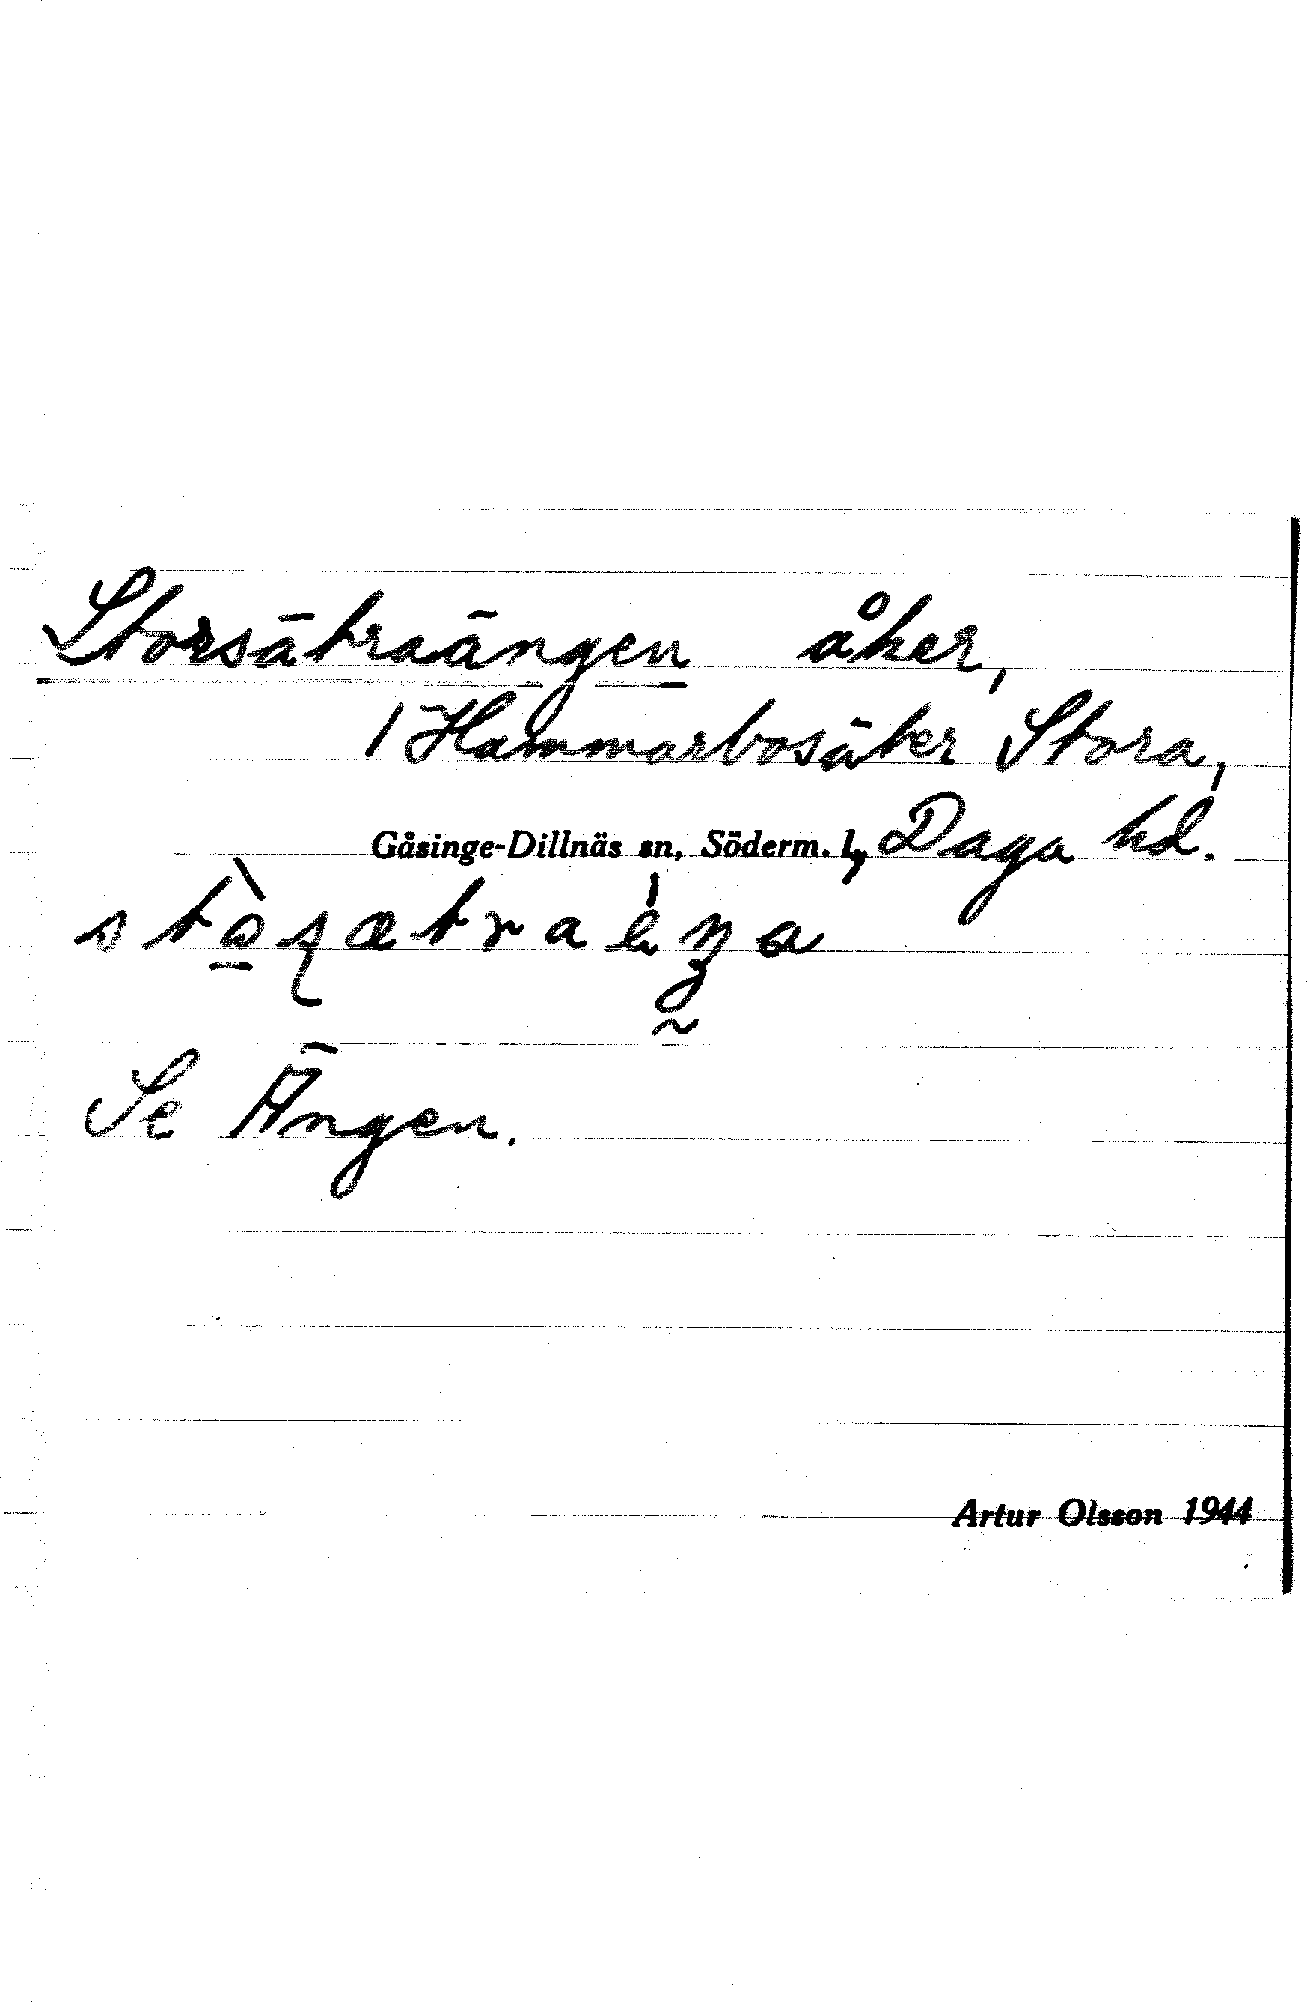 Storsätraängen åker,
1 Hammarbosäter Stora,
Gåsinge-Dillnäs sn, Söderm. l., Daga hd.
Se Ängen.
Artur Olsson 1944